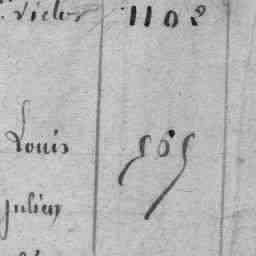 Victor 1102
Louis 565
julien